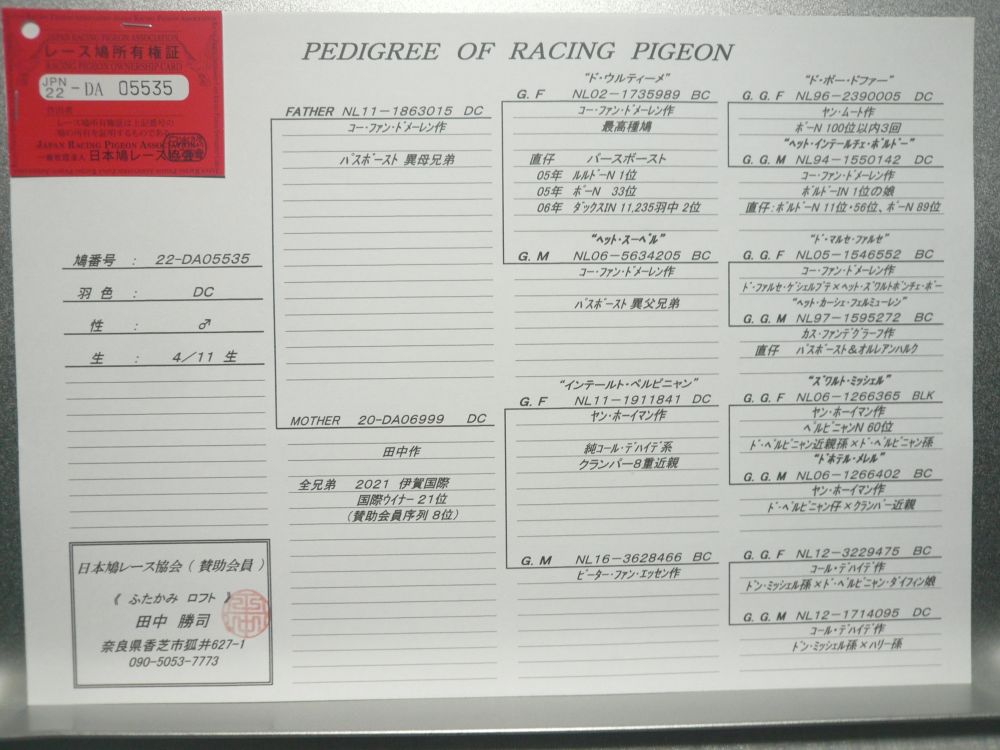 JAPAN RACING PIGEON ASSOCIATION
レース鳩所有権証
RACING PIGEON OWNERSHIP CARD
JPN
22 - DA 05535
レース鳩所有権証は上記番号の
鳩の所有を証明するものである
JAPAN RACING PIGEON ASSOCIATION
一般社団法人 日本鳩レース協会
PEDIGREE OF RACING PIGEON
鳩番号 : 22-DA05535
羽色 : DC
性 : ♂
生 : 4/11 生
日本鳩レース協会(賛助会員)
《 ふたかみ ロフト 》
田中 勝司
奈良県香芝市狐井627-1
090-5053-7773
FATHER NL11-1863015 DC
コー・ファン・ドメーレン作
パスポースト 異母兄弟
MOTHER 20-DA06999 DC
田中作
全兄弟 2021 伊賀国際
国際ウイナー 21位
(賛助会員序列 8位)
"ド・ウルティーメ"
G.F NL02-1735989 BC
コー・ファン・ドメーレン作
最高種鳩
直仔 パースポースト
05年 ルルドーN 1位
05年 ポーN 33位
06年 ダックスIN 11,235羽中 2位
"ヘット・スーペル"
G.M NL06-5634205 BC
コー・ファン・ドメーレン作
パスポースト 異父兄弟
"インテールト・ペルピニャン"
G.F NL11-1911841 DC
ヤン・ホーイマン作
純コール・デハイデ系
クランパー8重近親
G.M NL16-3628466 BC
ピーター・ファン・エッセン作
"ド・ポー・ドファー"
G.G.F NL96-2390005 DC
ヤン・ムート作
ポーN 100位以内3回
"ヘット・インテールチェ・ボルドー"
G.G.M NL94-1550142 DC
コー・ファン・ドメーレン作
ボルドーIN 1位の娘
直仔:ボルドーN 11位・56位、ポーN 89位
"ド・マルセ・ファルセ"
G.G.F NL05-1546552 BC
コー・ファン・ドメーレン作
ド・ファルセ・ゲシェルプテ×ヘット・ズワルトポンチェ・ポー
"ヘット・カーシェ・フェルミューレン"
G.G.M NL97-1595272 BC
カス・ファンデグラーフ作
直仔 パスポースト&オルレアンハルク
"ズワルト・ミッシェル"
G.G.F NL06-1266365 BLK
ヤン・ホーイマン作
ペルピニャンN 60位
ド・ペルピニャン近親孫×ド・ペルピニャン孫
"ドホテル・メレル"
G.G.M NL06-1266402 BC
ヤン・ホーイマン作
ド・ペルピニャン仔×クランパー近親
G.G.F NL12-3229475 BC
コール・デハイデ作
ドン・ミッシェル孫×ド・ペルピニャン・ダイフィン娘
G.G.M NL12-1714095 DC
コール・デハイデ作
ドン・ミッシェル孫×ハリー孫